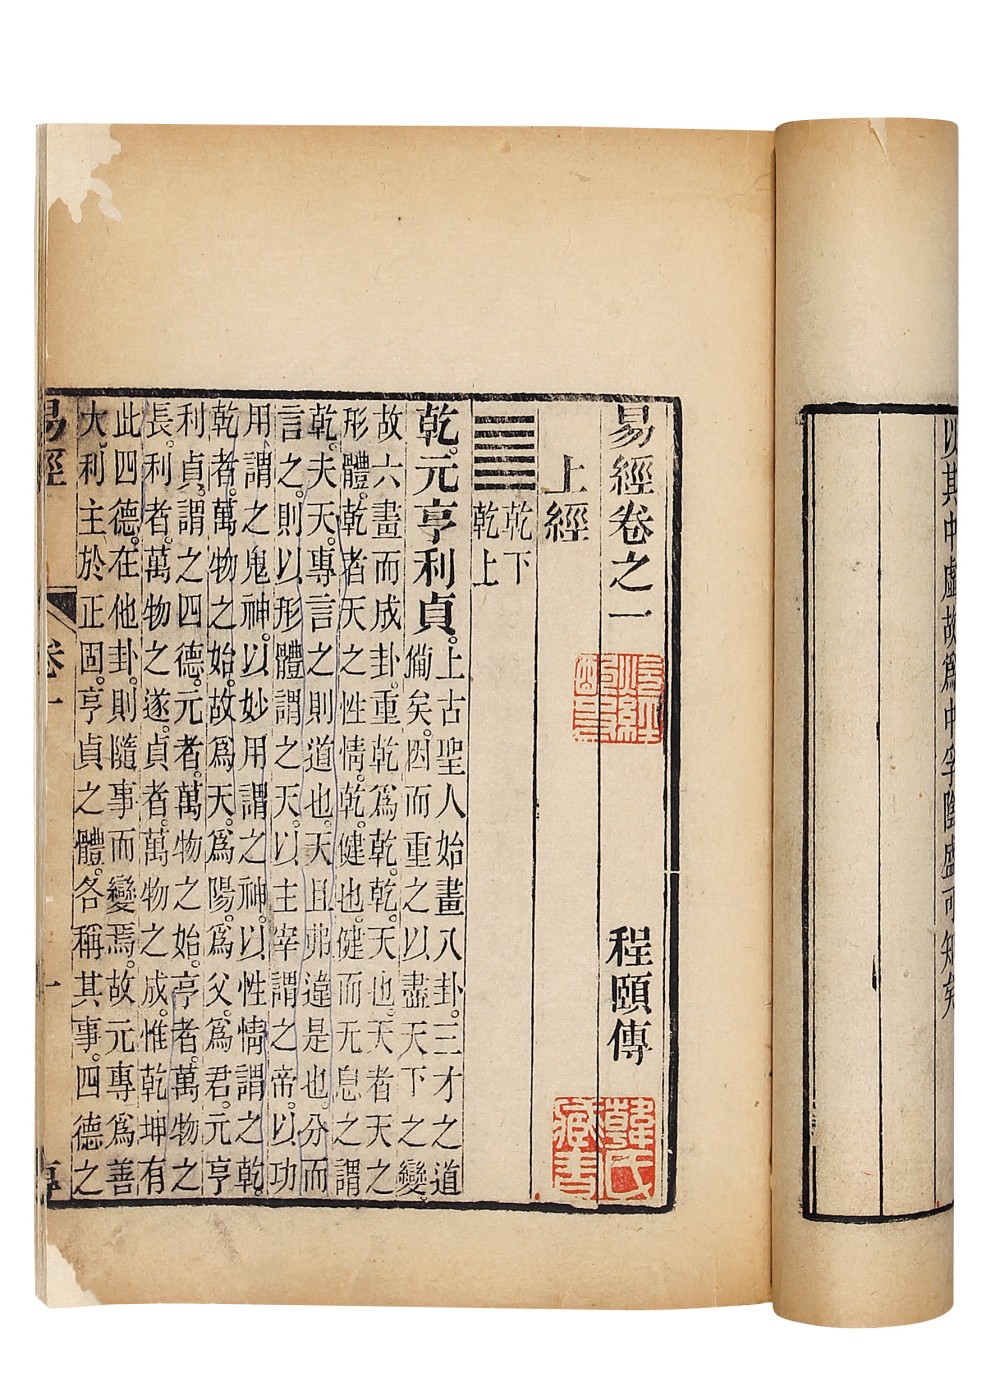 以其中虛故爲中孚陰盛可知矣
易經卷之一
程頤傳
韓氏藏書
上經
乾下
乾上
乾。元亨利貞。
上古聖人始畫八卦。三才之道
備矣。因而重之以盡天下之變。
故六畫而成卦。重乾爲乾。乾。天也。天者天之
形體。乾者天之性情。乾。健也。健而无息之謂
乾。夫天。專言之則道也。天且弗違是也。分而
言之。則以形體謂之天。以主宰謂之帝。以功
用謂之鬼神。以妙用謂之神。以性情謂之乾。
乾者。萬物之始。故爲天。爲陽。爲父。爲君。元亨
利貞。謂之四德。元者。萬物之始。亨者。萬物之
長。利者。萬物之遂。貞者。萬物之成。惟乾坤有
此四德。在他卦。則隨事而變焉。故元專爲善
大。利主於正固。亨貞之體。各稱其事。四德之
易經
卷一